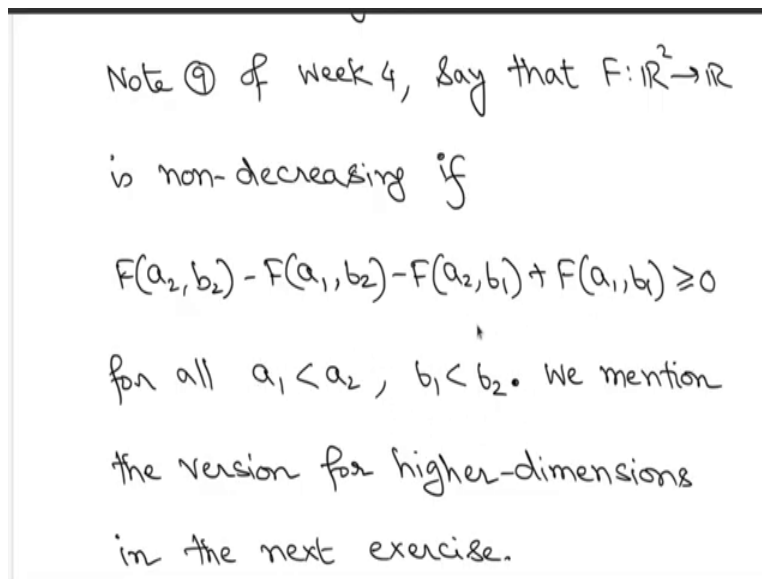 Note ⑨ of week 4, say that F: ℝ² → ℝ
is non-decreasing if
F(a₂, b₂) - F(a₁, b₂) - F(a₂, b₁) + F(a₁, b₁) ≥ 0
for all a₁ < a₂, b₁ < b₂. We mention
the version for higher-dimensions
in the next exercise.